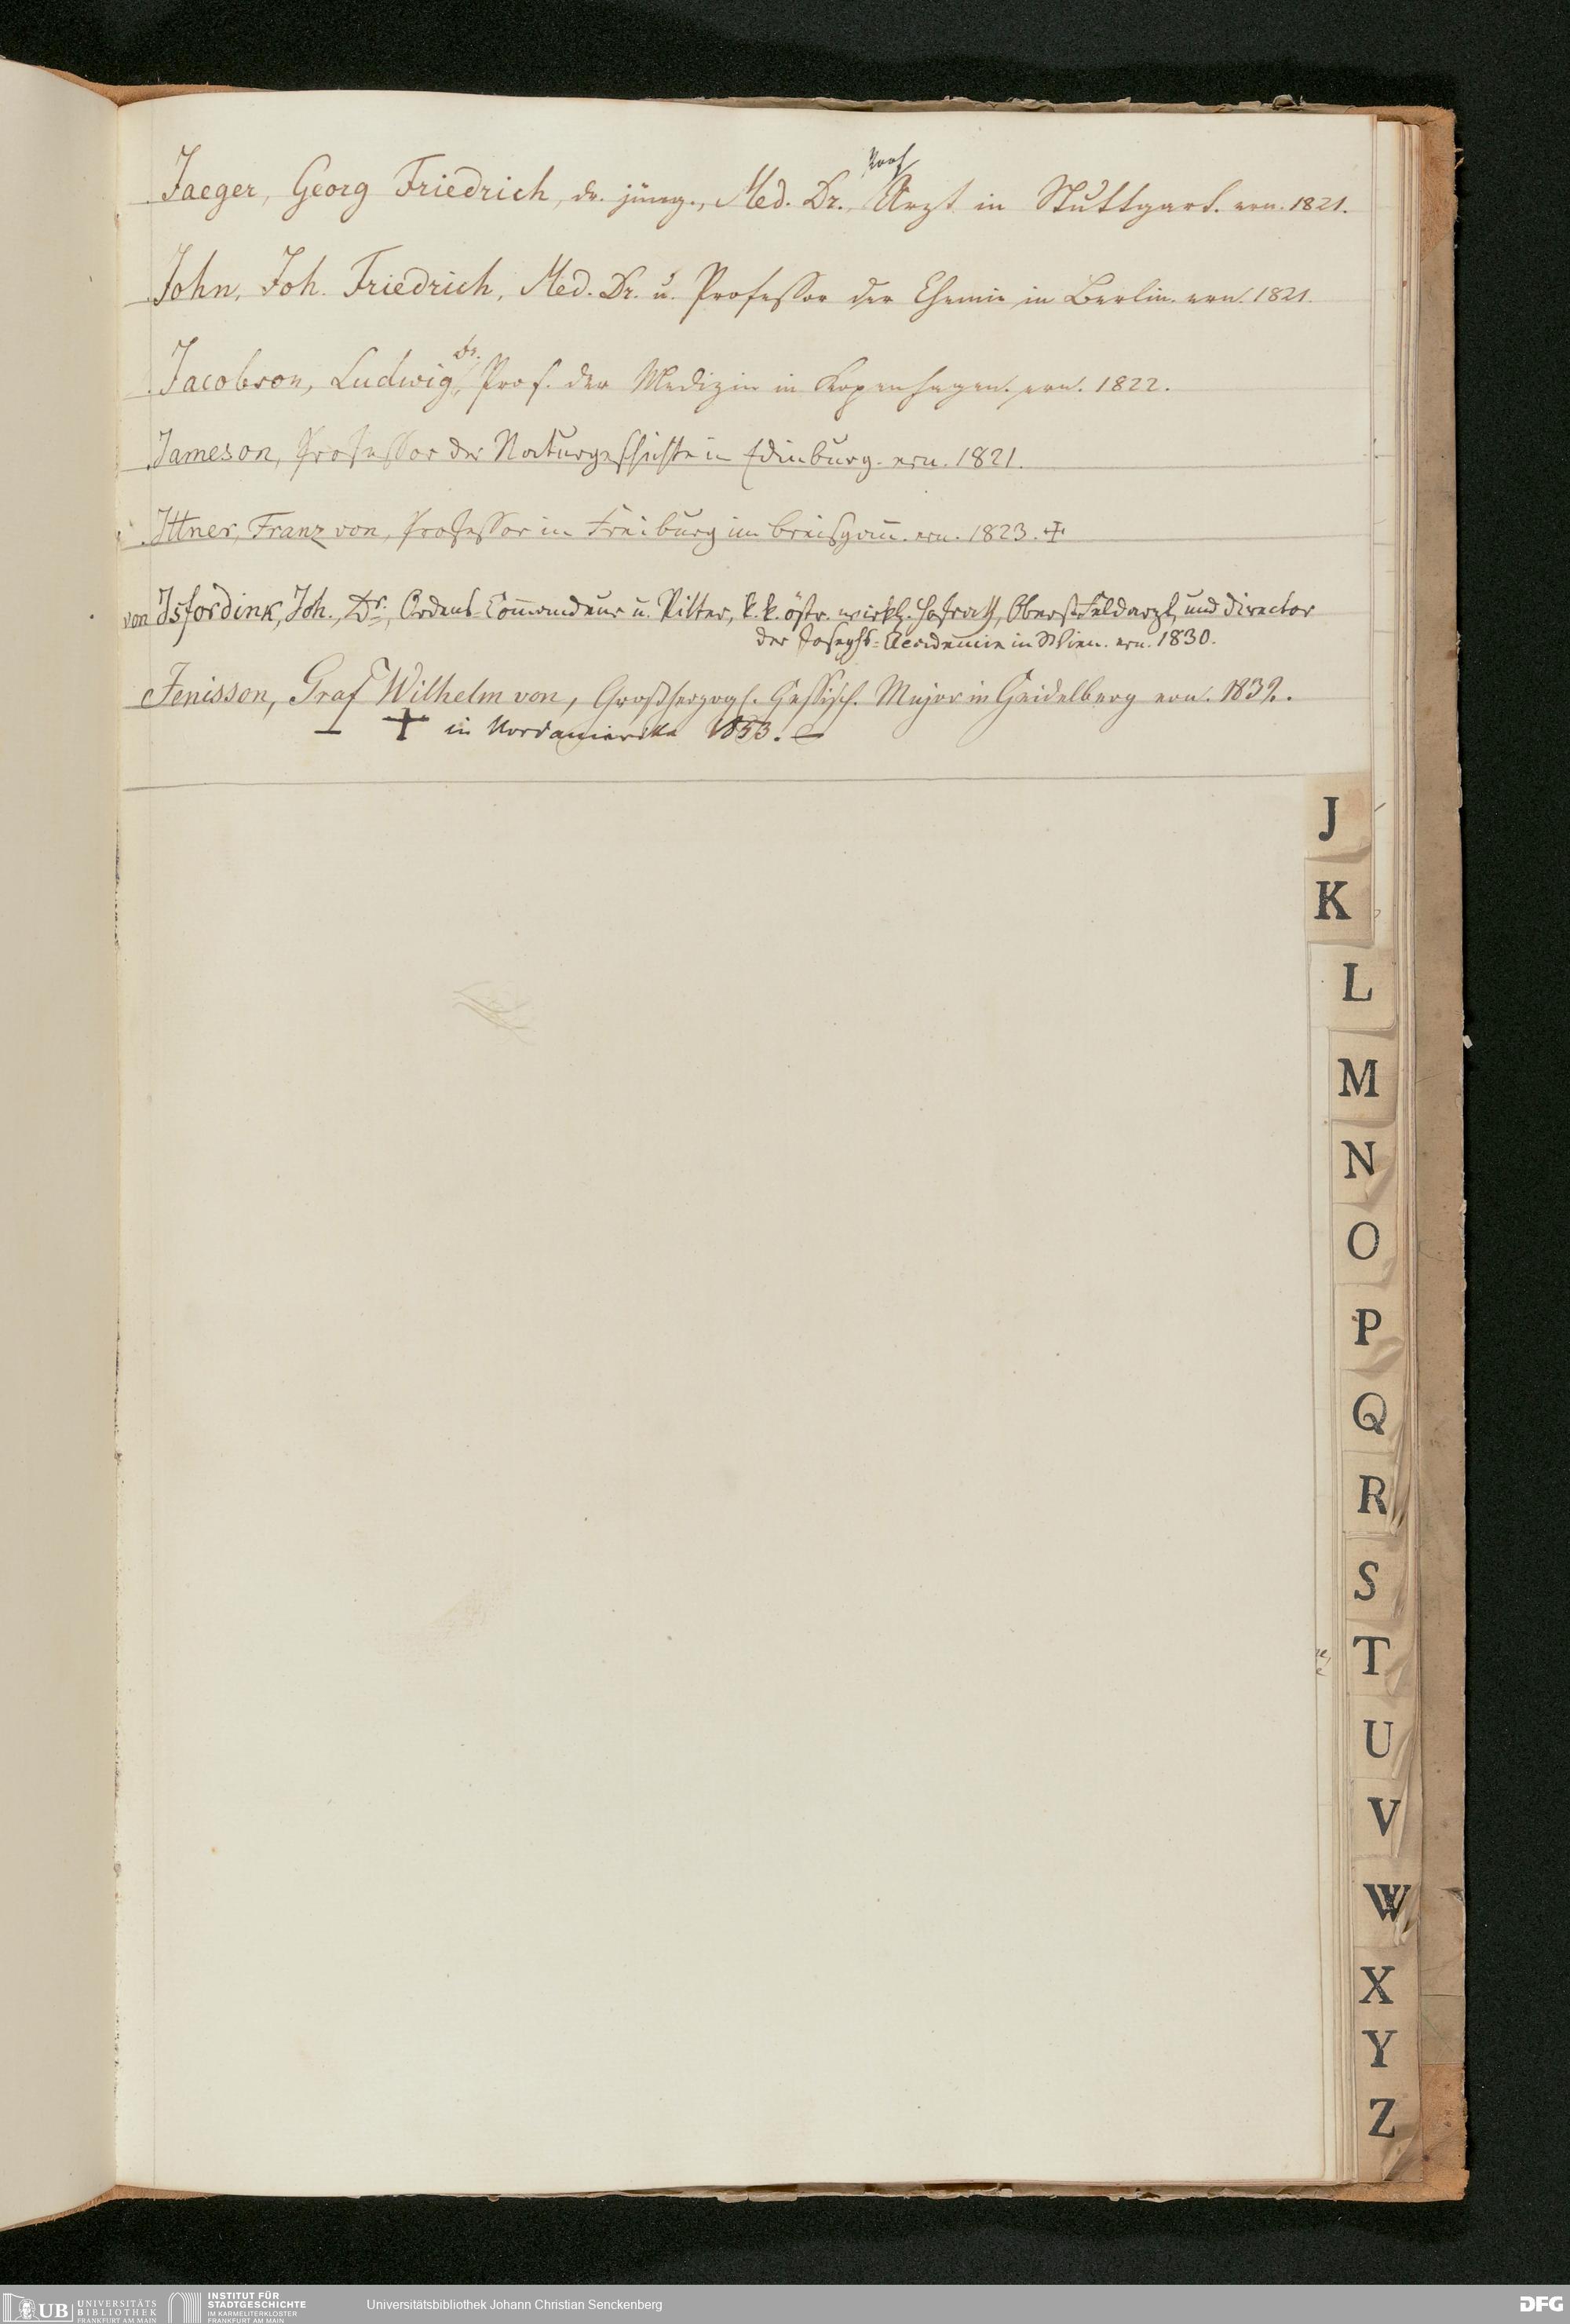 Prof
Jaeger, Georg Friedrich, dr. jüng., Med. Dr., Arzt in Stuttgart. ern. 1821.
John, Joh. Friedrich, Med. Dr. u. Professor der Chemie in Berlin. ern. 1821.
Dr.
Jacobson, Ludwig, Prof. der Medizin in Kopenhagen. ern. 1822.
Jameson, Professor der Naturgeschichte in Edinburg. ern. 1821.
Ittner, Franz von, Professor in Freiburg im Breisgau. ern. 1823. +
von Isfordink, Joh., Dr., Ordens-Com̄andeur u. Ritter, k. k. östr. wirkl. Hofrath, Oberst-Feldarzt, und Director
der Josephs-Academie in Wien. ern. 1830.
Jenisson, Graf Wilhelm von, Großherzogl. Hessisch. Major in Heidelberg ern. 1832.
— + in Nordamerika 1853. —
J
K
L
M
N
O
P
Q
R
S
T
U
V
W
X
Y
Z
UB UNIVERSITÄTS BIBLIOTHEK FRANKFURT AM MAIN
INSTITUT FÜR STADTGESCHICHTE IM KARMELITERKLOSTER FRANKFURT AM MAIN
Universitätsbibliothek Johann Christian Senckenberg
DFG